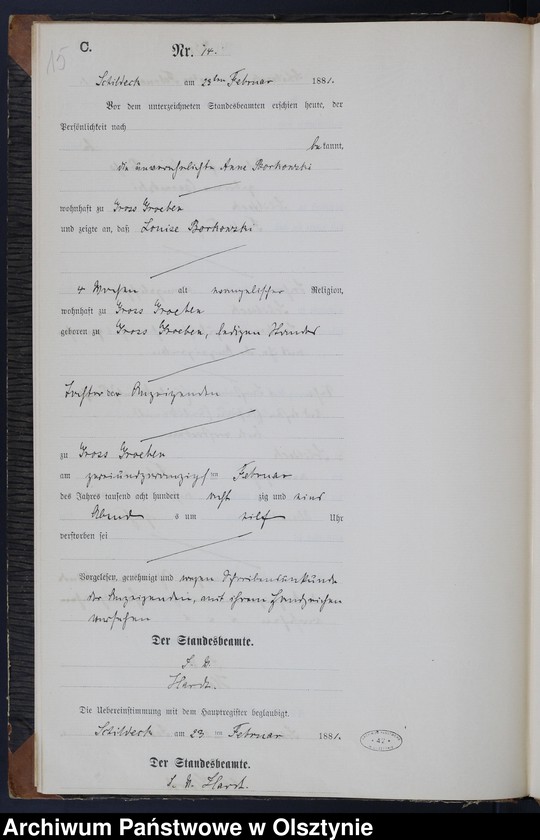 15
C.
Nr. 14.
Schildeck am 23ten Februar 1881.
Vor dem unterzeichneten Standesbeamten erschien heute, der
Persönlichkeit nach
bekannt,
die unverehelichte Anne Borkowski
wohnhaft zu Gross Groeben
und zeigte an, daß Louise Borkowski
4 Wochen alt evangelischer Religion,
wohnhaft zu Gross Groeben
geboren zu Gross Groeben, ledigen Standes
Tochter der Anzeigenden
zu Gross Groeben
am zweiundzwanzigsten Februar
des Jahres tausend acht hundert acht zig und eins
Abends um elf Uhr
verstorben sei
Vorgelesen, genehmigt und wegen Schreibensunkunde
der Anzeigenden, mit ihrem Handzeichen
versehen
Der Standesbeamte.
Hardt.
Die Uebereinstimmung mit dem Hauptregister beglaubigt.
Schildeck am 23ten Februar 1881.
Der Standesbeamte.
Hardt.
Archiwum Państwowe w Olsztynie